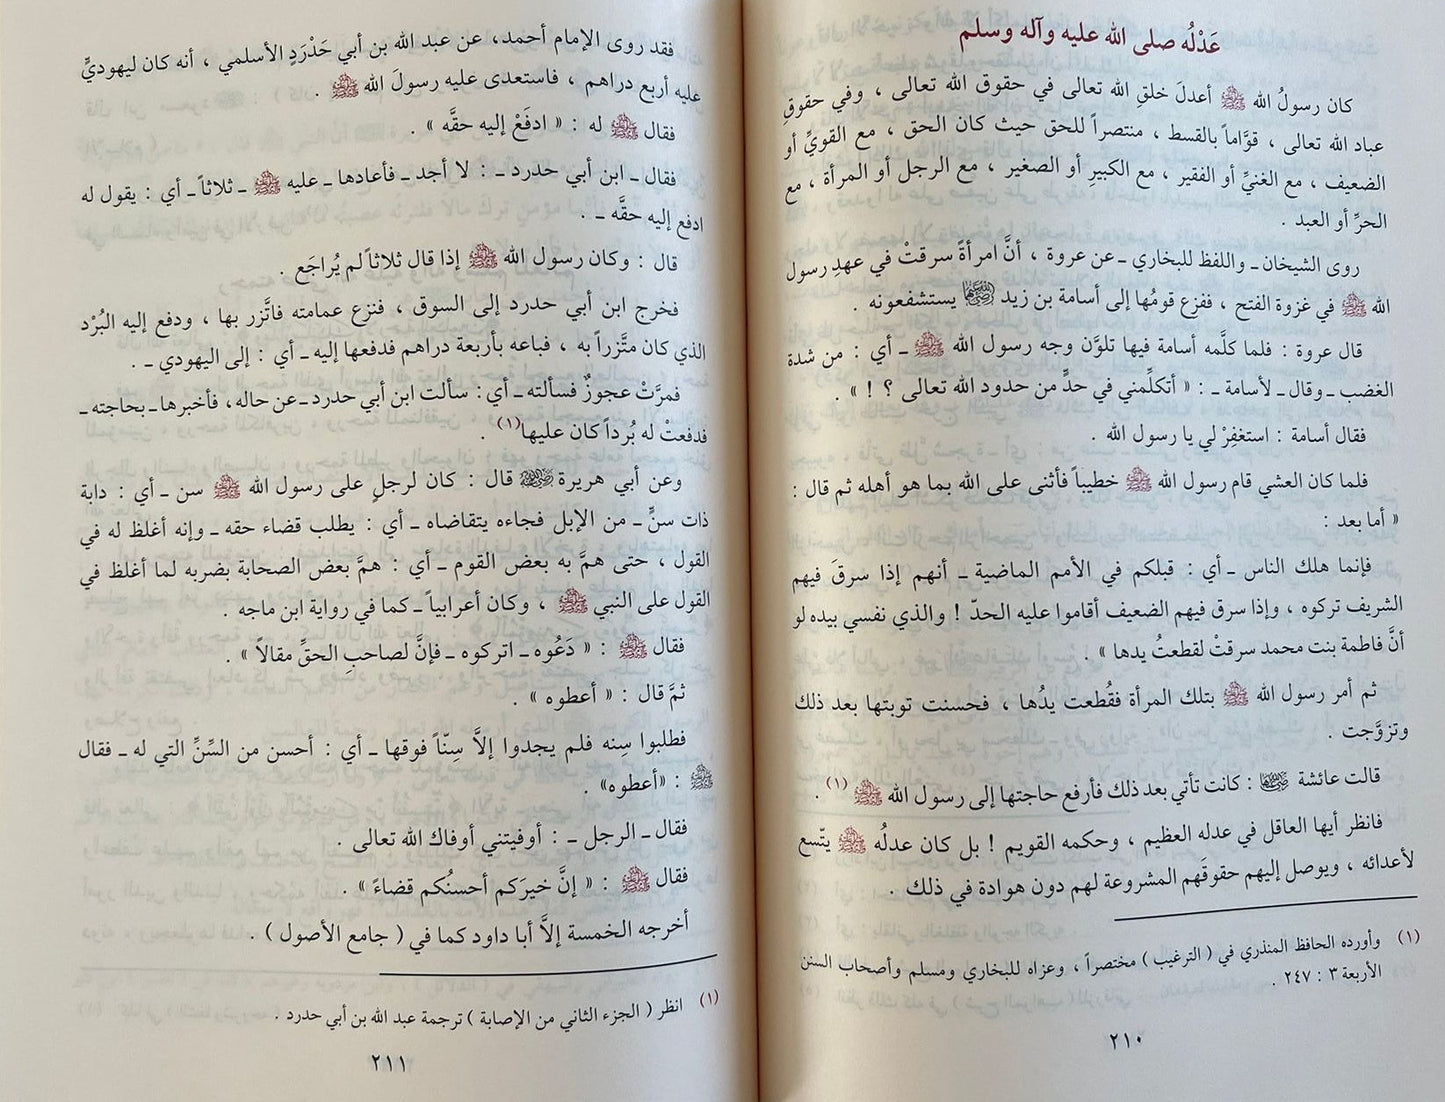 عَدْلُه صلى الله عليه وآله وسلم
كان رسولُ الله ﷺ أعدلَ خلقِ الله تعالى في حقوق الله تعالى ، وفي حقوقِ
عباد الله تعالى ، قوَّاماً بالقسط ، منتصراً للحق حيث كان الحق ، مع القويِّ أو
الضعيف ، مع الغنيِّ أو الفقير ، مع الكبيرِ أو الصغير ، مع الرجل أو المرأة ، مع
الحرِّ أو العبد .
روى الشيخان ـ واللفظ للبخاري ـ عن عروة ، أنَّ امرأةً سرقتْ في عهدِ رسول
الله ﷺ في غزوة الفتح ، ففزع قومُها إلى أسامة بن زيد رضي الله عنهما يستشفعونه .
قال عروة : فلما كلَّمه أسامة فيها تلوَّن وجه رسول الله ﷺ ـ أي : من شدة
الغضب ـ وقال ـ لأسامة ـ : « أتكلِّمني في حدٍّ من حدود الله تعالى ؟ ! » .
فقال أسامة : استغفرْ لي يا رسول الله .
فلما كان العشي قام رسول الله ﷺ خطيباً فأثنى على الله بما هو أهله ثم قال :
« أما بعد :
فإنما هلك الناس ـ أي : قبلكم في الأمم الماضية ـ أنهم إذا سرقَ فيهم
الشريف تركوه ، وإذا سرق فيهم الضعيف أقاموا عليه الحدّ ! والذي نفسي بيده لو
أنَّ فاطمة بنت محمد سرقتْ لقطعتُ يدها » .
ثم أمر رسول الله ﷺ بتلك المرأة فقُطعت يدُها ، فحسنت توبتها بعد ذلك
وتزوَّجت .
قالت عائشة رضي الله عنها : كانت تأتي بعد ذلك فأرفع حاجتها إلى رسول الله ﷺ (١) .
فانظر أيها العاقل في عدله العظيم ، وحكمه القويم ! بل كان عدلُه ﷺ يتّسع
لأعدائه ، ويوصل إليهم حقوقَهم المشروعة لهم دون هوادة في ذلك .
(١) وأورده الحافظ المنذري في ( الترغيب ) مختصراً ، وعزاه للبخاري ومسلم وأصحاب السنن
الأربعة ٣ : ٢٤٧ .
٢١٠
فقد روى الإمام أحمد، عن عبد الله بن أبي حَدْرَدٍ الأسلمي ، أنه كان ليهوديٍّ
عليه أربع دراهم ، فاستعدى عليه رسولَ الله ﷺ .
فقال ﷺ له : « ادفَعْ إليه حقَّه » .
فقال ـ ابن أبي حدرد ـ : لا أجد ـ فأعادها ـ عليه ﷺ ـ ثلاثاً ـ أي : يقول له
ادفع إليه حقَّه ـ .
قال : وكان رسول الله ﷺ إذا قال ثلاثاً لم يُراجَع .
فخرج ابن أبي حدرد إلى السوق ، فنزع عمامته فاتَّزر بها ، ودفع إليه البُرْد
الذي كان متَّزراً به ، فباعه بأربعة دراهم فدفعها إليه ـ أي : إلى اليهودي ـ .
فمرَّتْ عجوزٌ فسألته ـ أي : سألت ابن أبي حدرد ـ عن حاله، فأخبرها ـ بحاجته ـ
فدفعتْ له بُرداً كان عليها(١) .
وعن أبي هريرة رضي الله عنه قال : كان لرجلٍ على رسول الله ﷺ سن ـ أي : دابة
ذات سنٍّ ـ من الإبل فجاءه يتقاضاه ـ أي : يطلب قضاء حقه ـ وإنه أغلظ له في
القول ، حتى همَّ به بعض القوم ـ أي : همَّ بعض الصحابة بضربه لما أغلظ في
القول على النبي ﷺ ، وكان أعرابياً ـ كما في رواية ابن ماجه .
فقال ﷺ : « دَعُوه ـ اتركوه ـ فإنَّ لصاحبِ الحقِّ مقالاً » .
ثمَّ قال : « أعطوه » .
فطلبوا سِنه فلم يجدوا إلاَّ سِنّاً فوقها ـ أي : أحسن من السِّنِّ التي له ـ فقال
ﷺ : «أعطوه» .
فقال ـ الرجل ـ : أوفيتني أوفاك الله تعالى .
فقال ﷺ : « إنَّ خيرَكم أحسنُكم قضاءً » .
أخرجه الخمسة إلاَّ أبا داود كما في ( جامع الأصول ) .
(١) انظر ( الجزء الثاني من الإصابة ) ترجمة عبد الله بن أبي حدرد .
٢١١